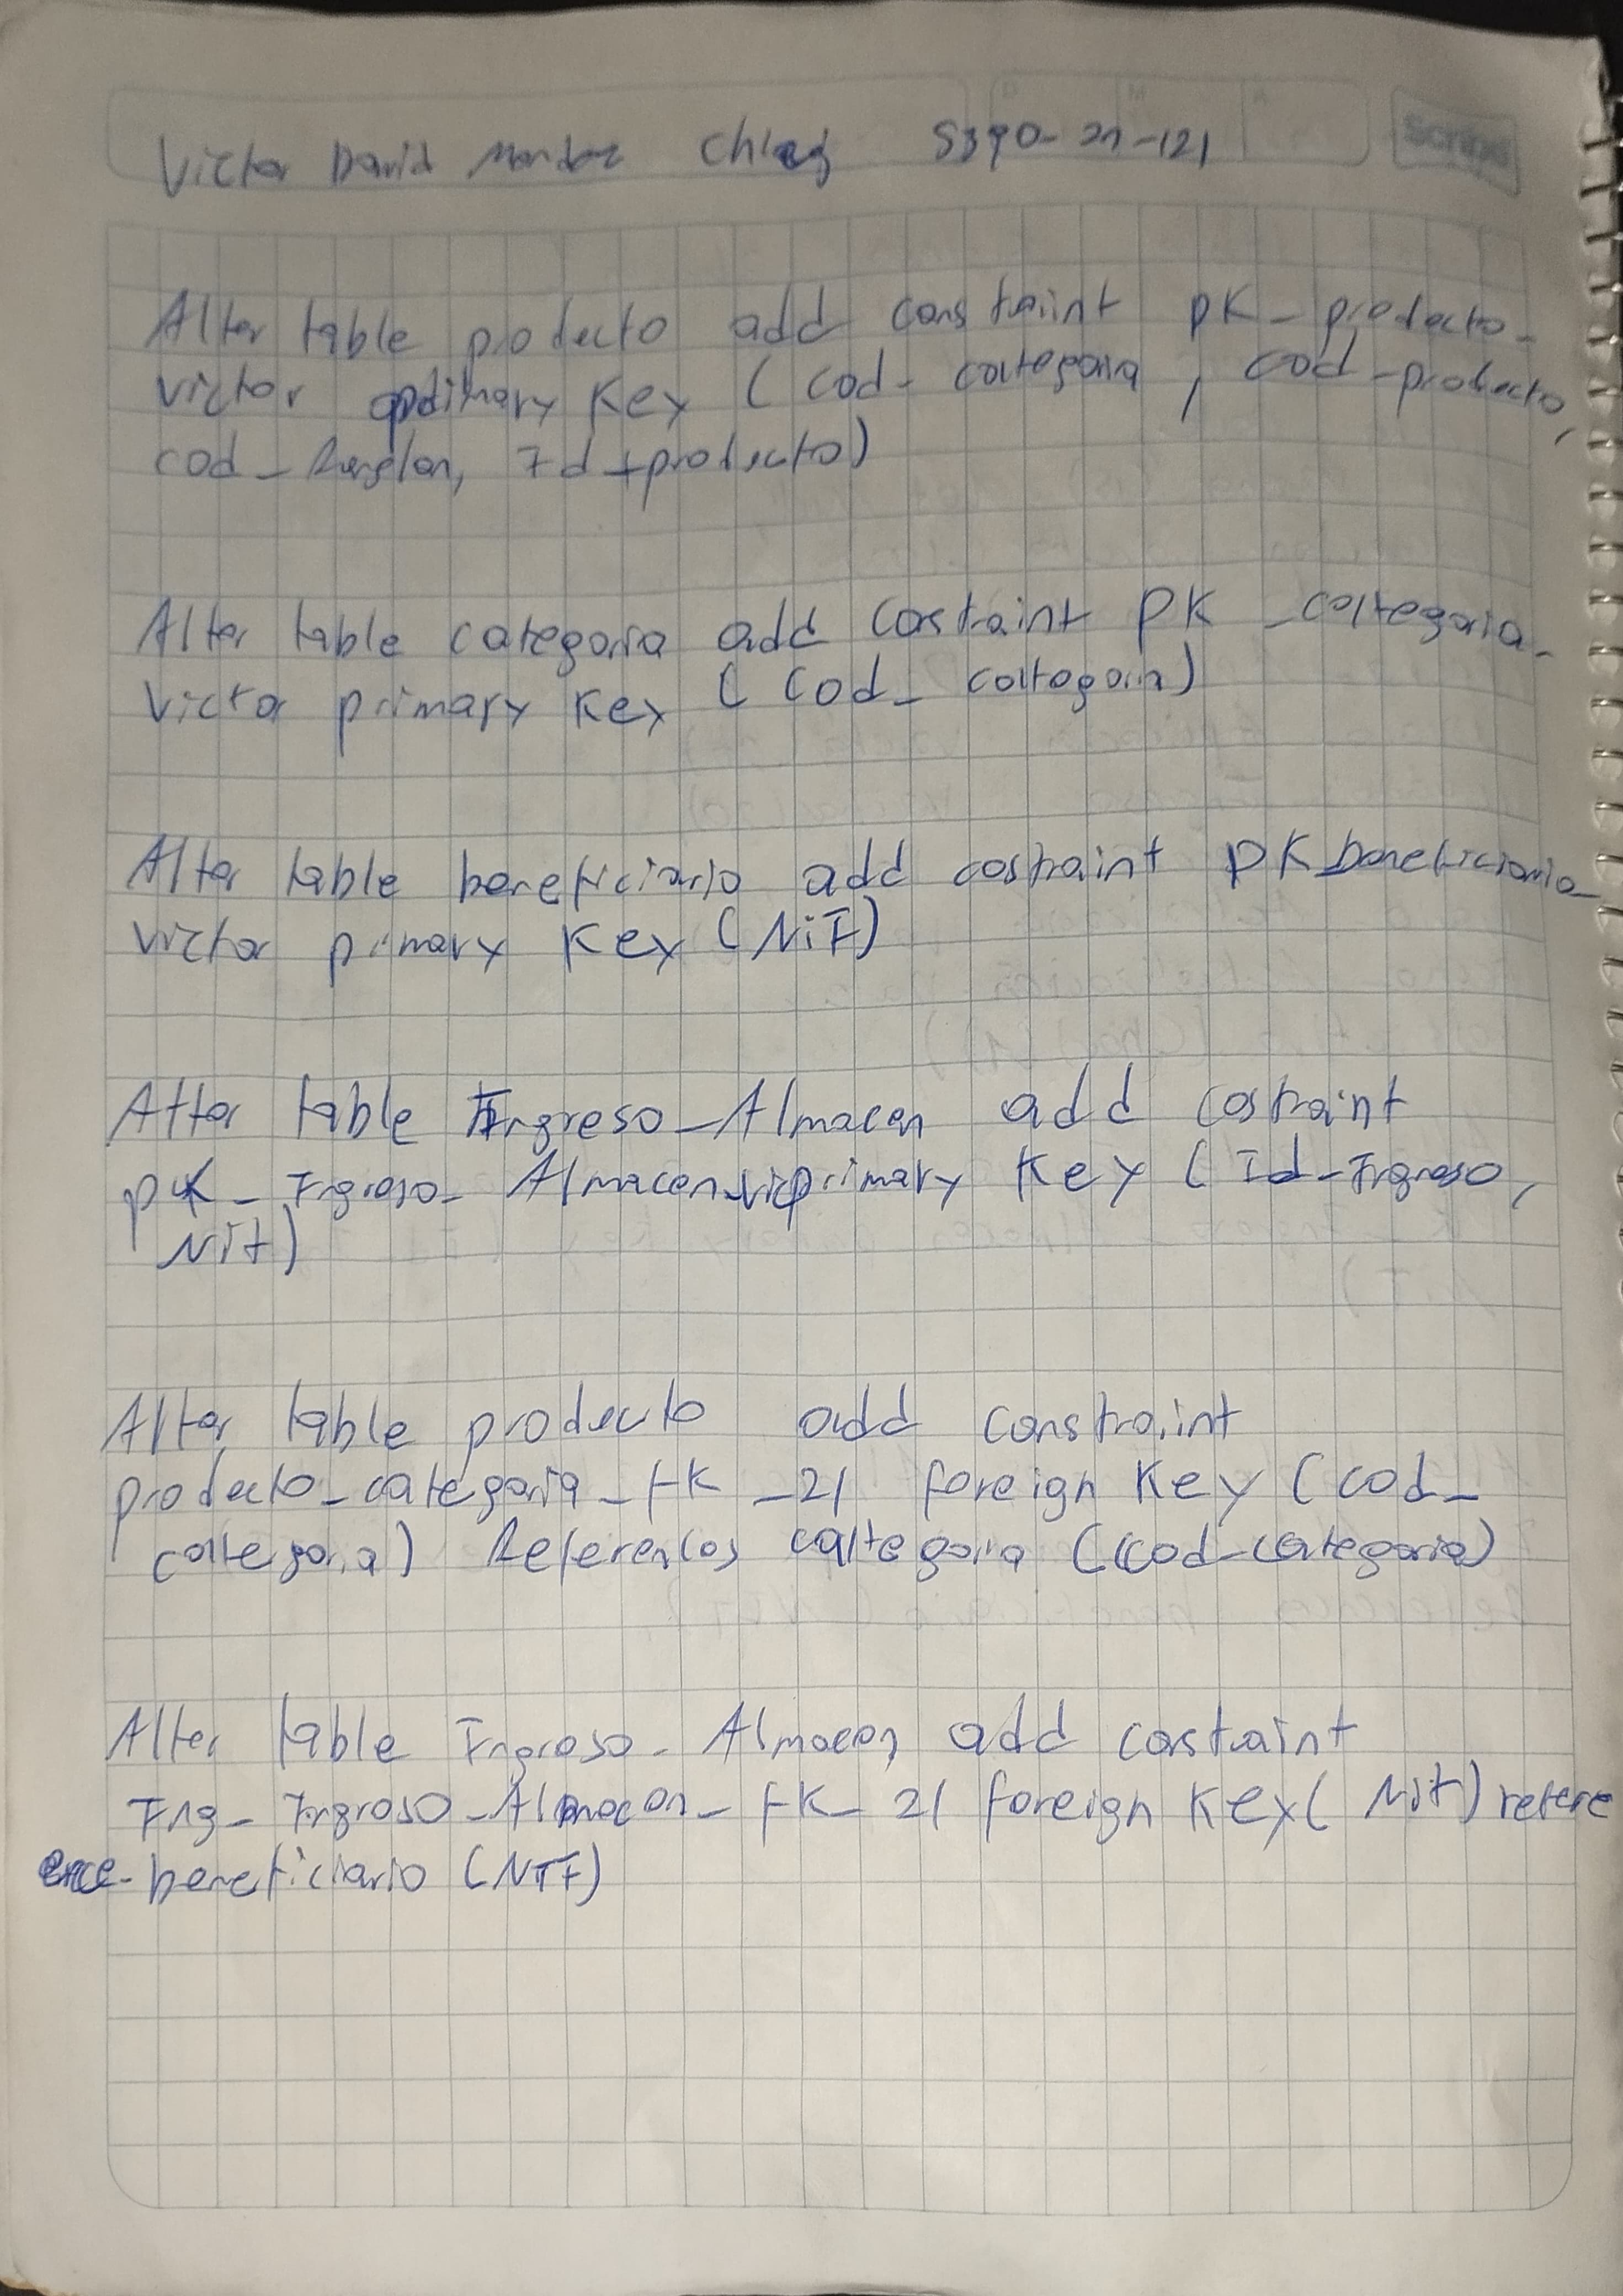 Victor David Mendez 5390-21-121
Scribe
Alter table producto add constraint pk_producto_
victor primary Key (cod_categoria, cod_producto,
cod_Renglon, Id_producto)
Alter table categoria add costraint PK_categoria_
Victor primary Key (Cod_categoria)
Alter table beneficiario add costraint PK_beneficiario_
Victor primary Key (NiT)
Alter table Ingreso_Almacen add costraint
pk_Ingreso_Almacen_vic primary Key (Id_Ingreso,
Nit)
Alter table producto add constraint
producto_categoria_fk_21 foreign Key (cod_
categoria) References categoria (cod_categoria)
Alter table Ingreso_Almacen add costraint
Ing_Ingreso_Almacen_fk_21 foreign Key (Nit) refere
ence beneficiario (NIT)